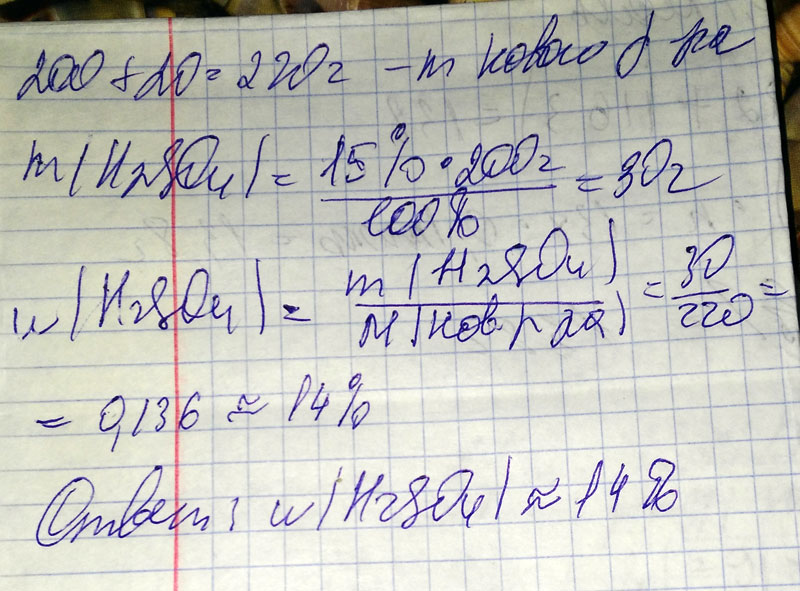 200 + 20 = 220г – m нового р-ра
m(H2SO4) = 15% · 200г / 100% = 30г
w(H2SO4) = m(H2SO4) / M(нов. р-ра) = 30 / 220 =
= 0,136 ≈ 14%
Ответ: w(H2SO4) ≈ 14%